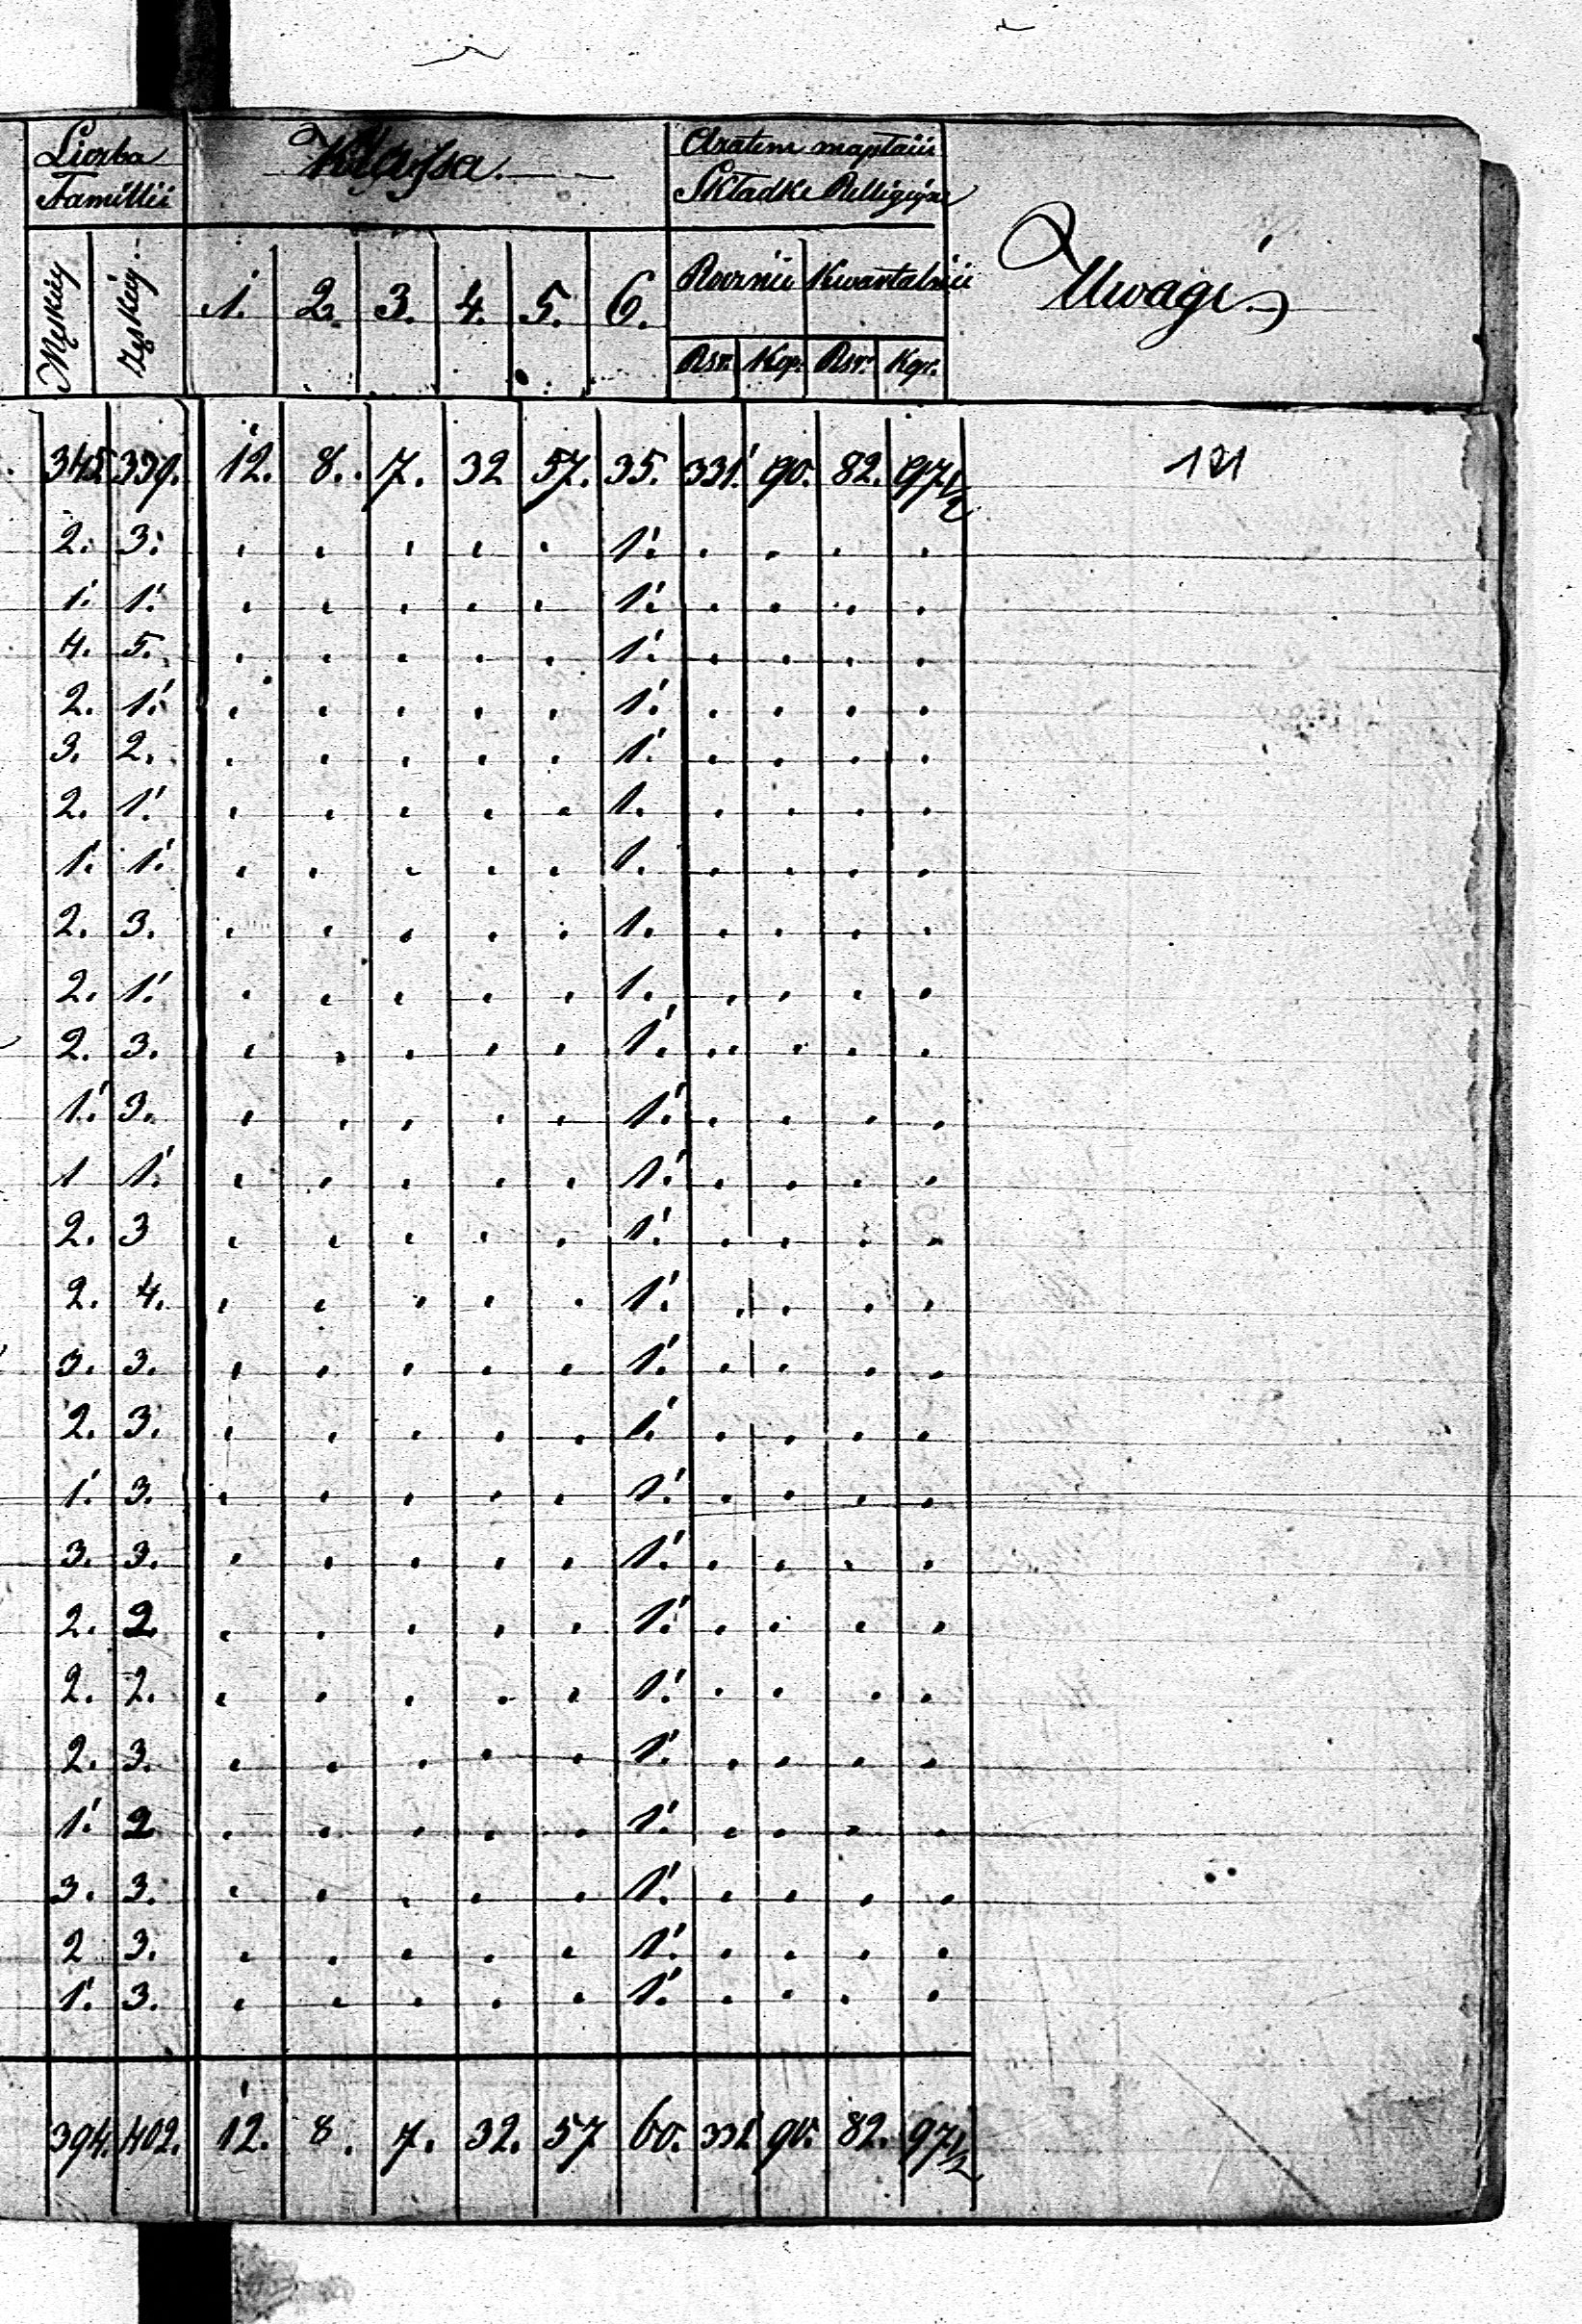 Liczba Klassa Aratem ma płacić
Familii Składkę Relligijną
Męskiey Żęskiey 1. 2. 3. 4. 5. 6. Rocznie Kwartalnie Uwagi
Rsr. Kop. Rsr. Kop.
345. 339. 12. 8. 7. 32 57. 35. 331. 90. 82. 97 1/2 121
2. 3. . . . . . 1. . . . .
1. 1. . . . . . 1. . . . .
4. 5. . . . . . 1. . . . .
2. 1. . . . . . 1. . . . .
3. 2. . . . . . 1. . . . .
2. 1. . . . . . 1. . . . .
1. 1. . . . . . 1. . . . .
2. 3. . . . . . 1. . . . .
2. 1. . . . . . 1. . . . .
2. 3. . . . . . 1. . . . .
1. 3. . . . . . 1. . . . .
1 1. . . . . . 1. . . . .
2. 3 . . . . . 1. . . . .
2. 4. . . . . . 1. . . . .
3. 3. . . . . . 1. . . . .
2. 3. . . . . . 1. . . . .
1. 3. . . . . . 1. . . . .
3. 3. . . . . . 1. . . . .
2. 2. . . . . . 1. . . . .
2. 2. . . . . . 1. . . . .
2. 3. . . . . . 1. . . . .
1. 2 . . . . . 1. . . . .
3. 3. . . . . . 1. . . . .
2 3. . . . . . 1. . . . .
1. 3. . . . . . 1. . . . .
394. 402. 12. 8. 7. 32. 57 60. 331. 90. 82. 97 1/2